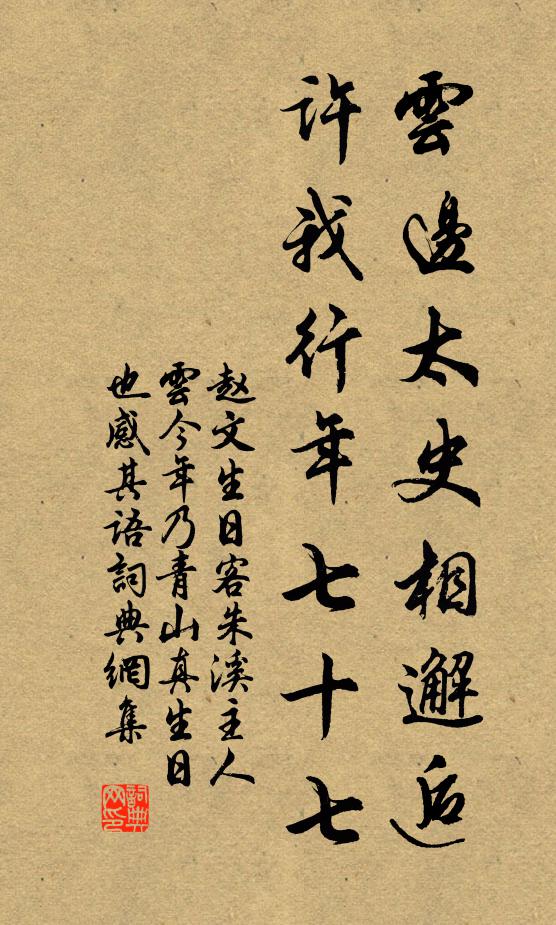 雲邊太史相邂逅
許我行年七十七
赵文生日客朱溪主人
雲今年乃青山真生日
也感其語詞典網集